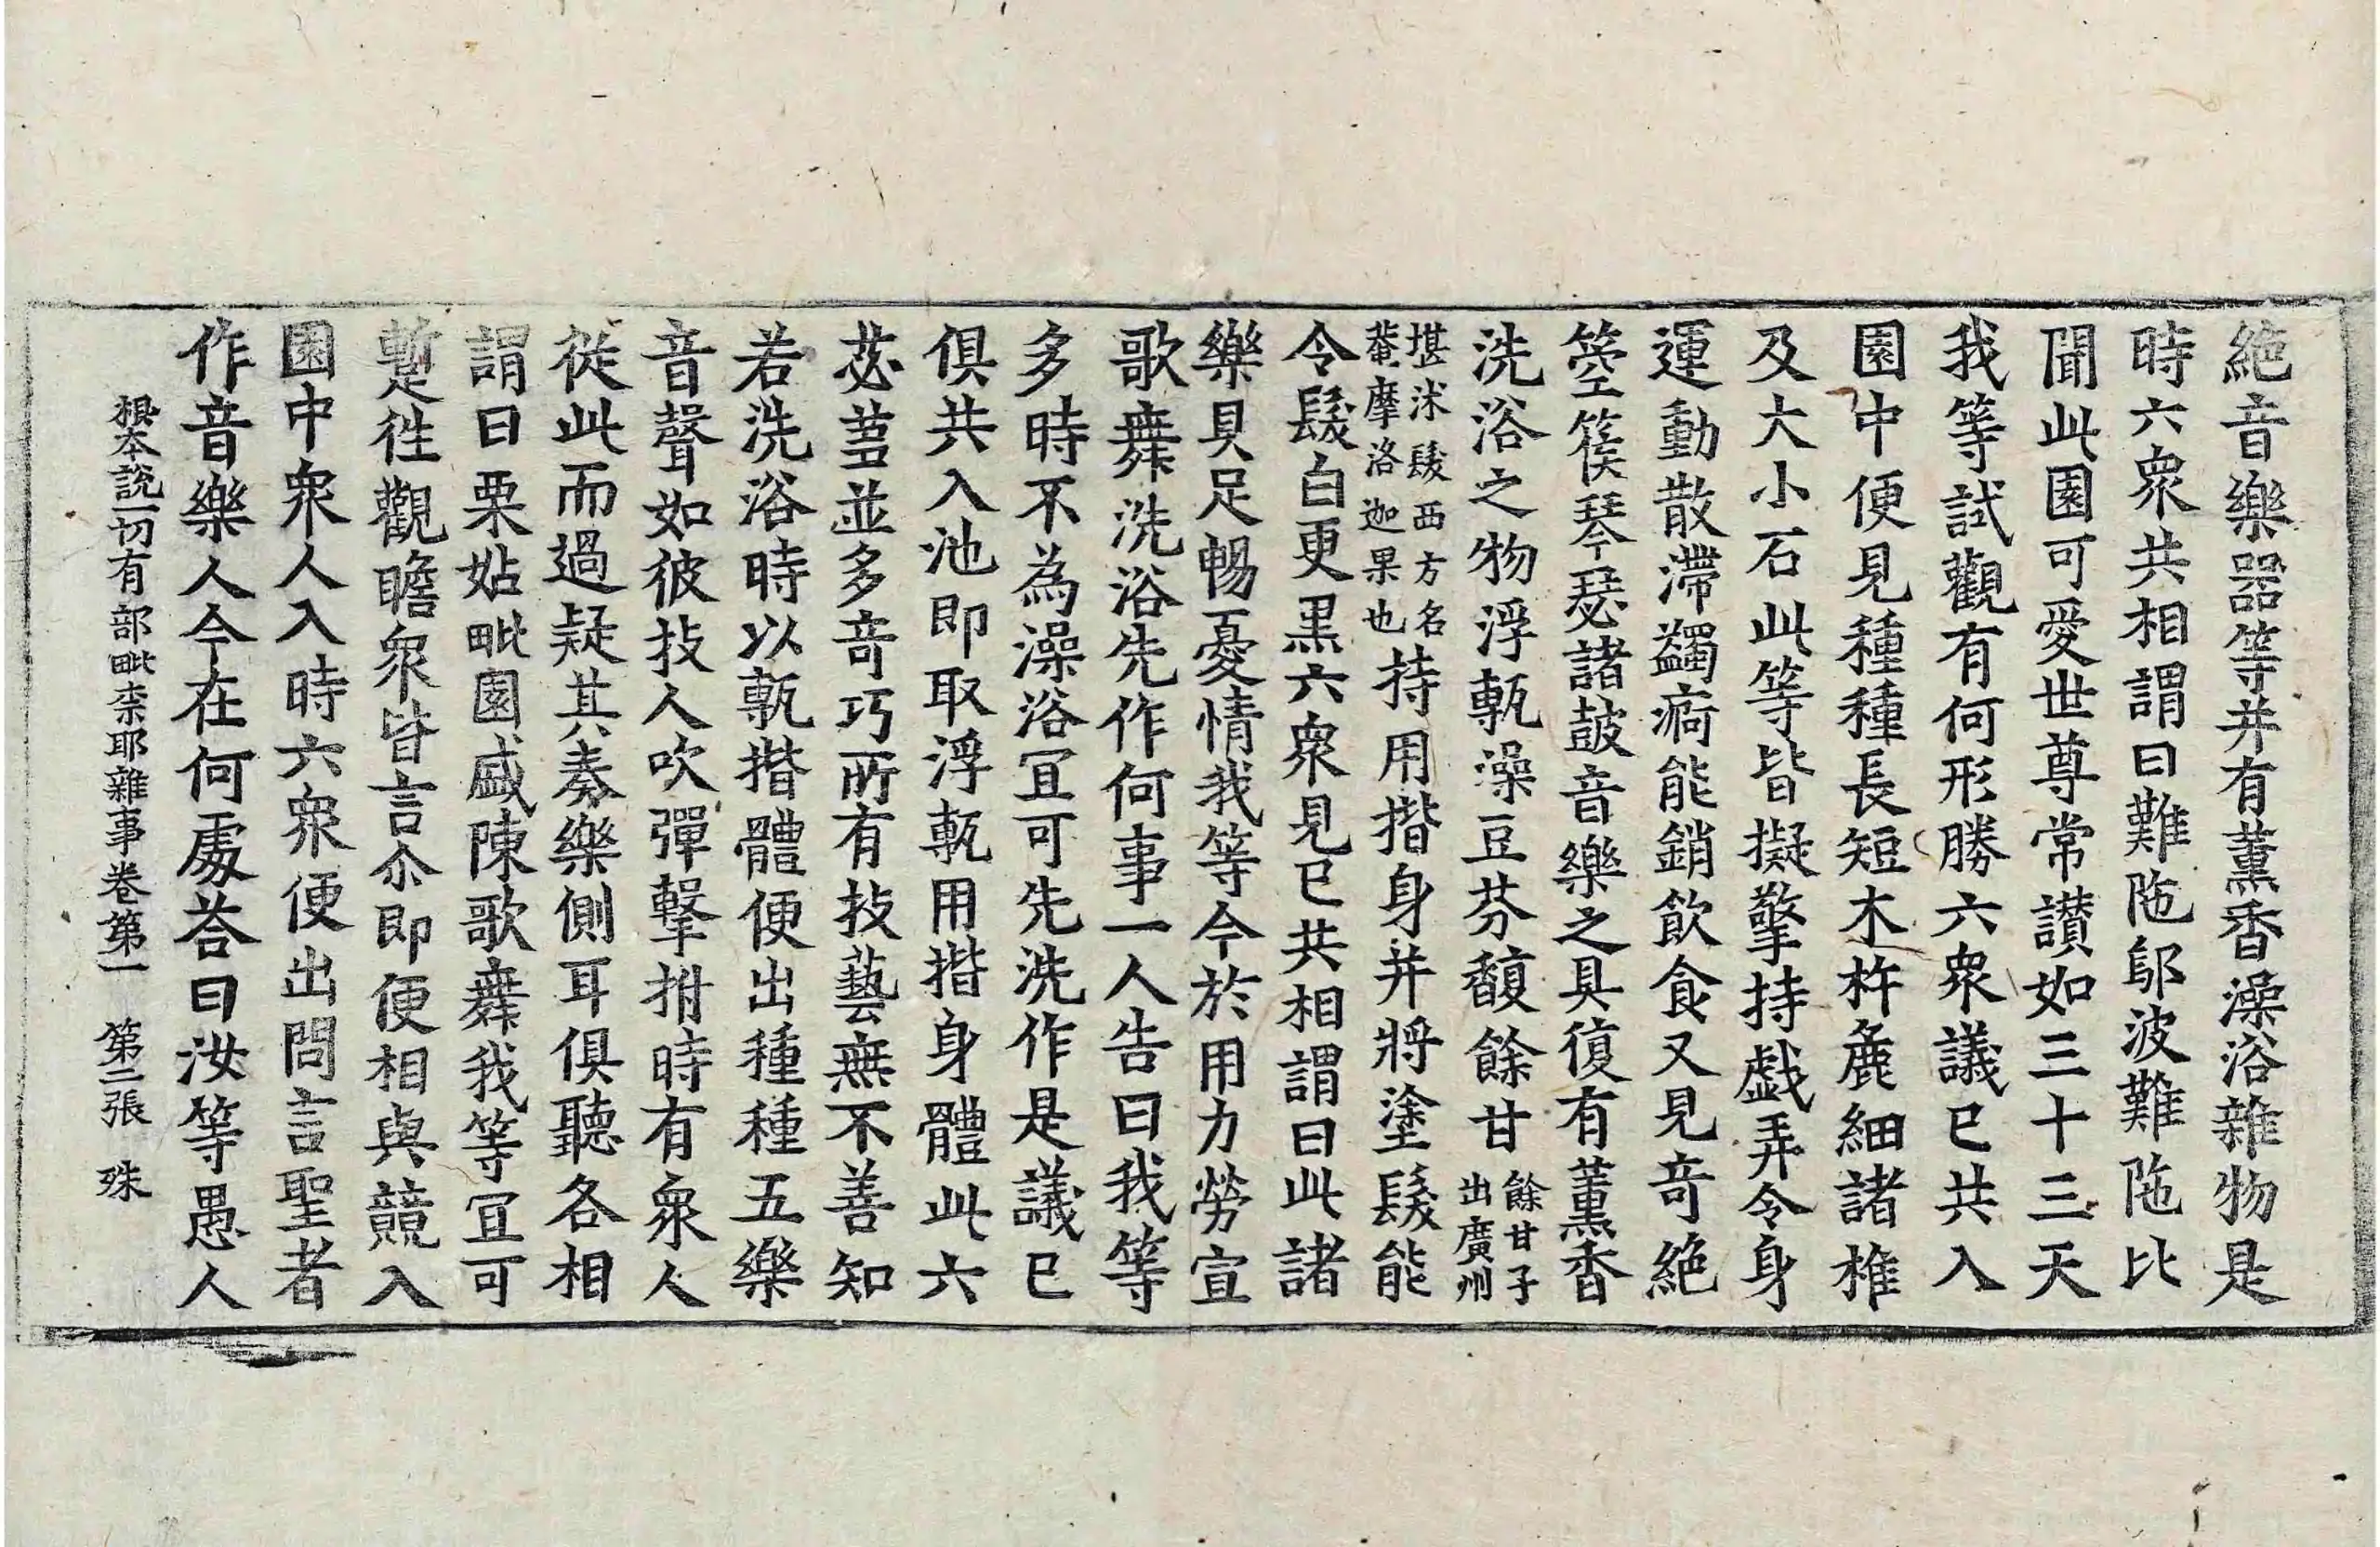 絶音樂器等并有薰香澡浴雜物是
時六衆共相謂曰難陁鄔波難陁比
聞此園可愛世尊常讃如三十三天
我等試觀有何形勝六衆議已共入
園中便見種種長短木杵麁細諸椎
及大小石此等皆擬擎持戱弄令身
運動散滯蠲痾能銷飲食又見竒絶
箜篌琴瑟諸皷音樂之具復有薰香
洗浴之物浮甎澡豆芬馥餘甘餘甘子出廣州
堪沬髮西方名菴摩洛迦果也持用揩身并將塗髮能
令髮白更黒六衆見已共相謂曰此諸
樂具足暢憂情我等今於用力勞宣
歌舞洗浴先作何事一人告曰我等
多時不為澡浴冝可先洗作是議已
俱共入池即取浮甎用揩身體此六
苾蒭並多竒巧所有技藝無不善知
若洗浴時以甎揩體便出種種五樂
音聲如彼技人吹彈擊拊時有衆人
從此而過疑其奏樂側耳俱聽各相
謂曰栗姑毗園盛陳歌舞我等冝可
暫徃觀瞻衆皆言尒即便相與競入
園中衆人入時六衆便出問言聖者
作音樂人今在何處荅曰汝等愚人
根本說一切有部毗柰耶雜事卷第一　第二張　殊